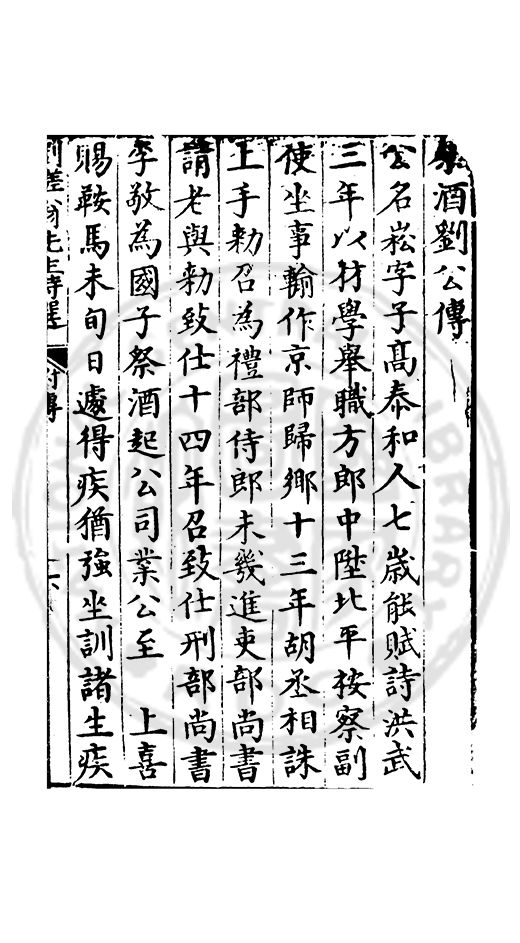 祭酒劉公傳
公名崧字子髙泰和人七歲能賦詩洪武
三年以材學舉職方郎中陞北平按察副
使坐事輸作京師歸鄉十三年胡丞相誅
上手勑召為禮部侍郎未幾進吏部尚書
請老與勑致仕十四年召致仕刑部尚書
李敬為國子祭酒起公司業公至　上喜
賜鞍馬未旬日遽得疾猶強坐訓諸生疾
劉槎翁先生詩選 附傳